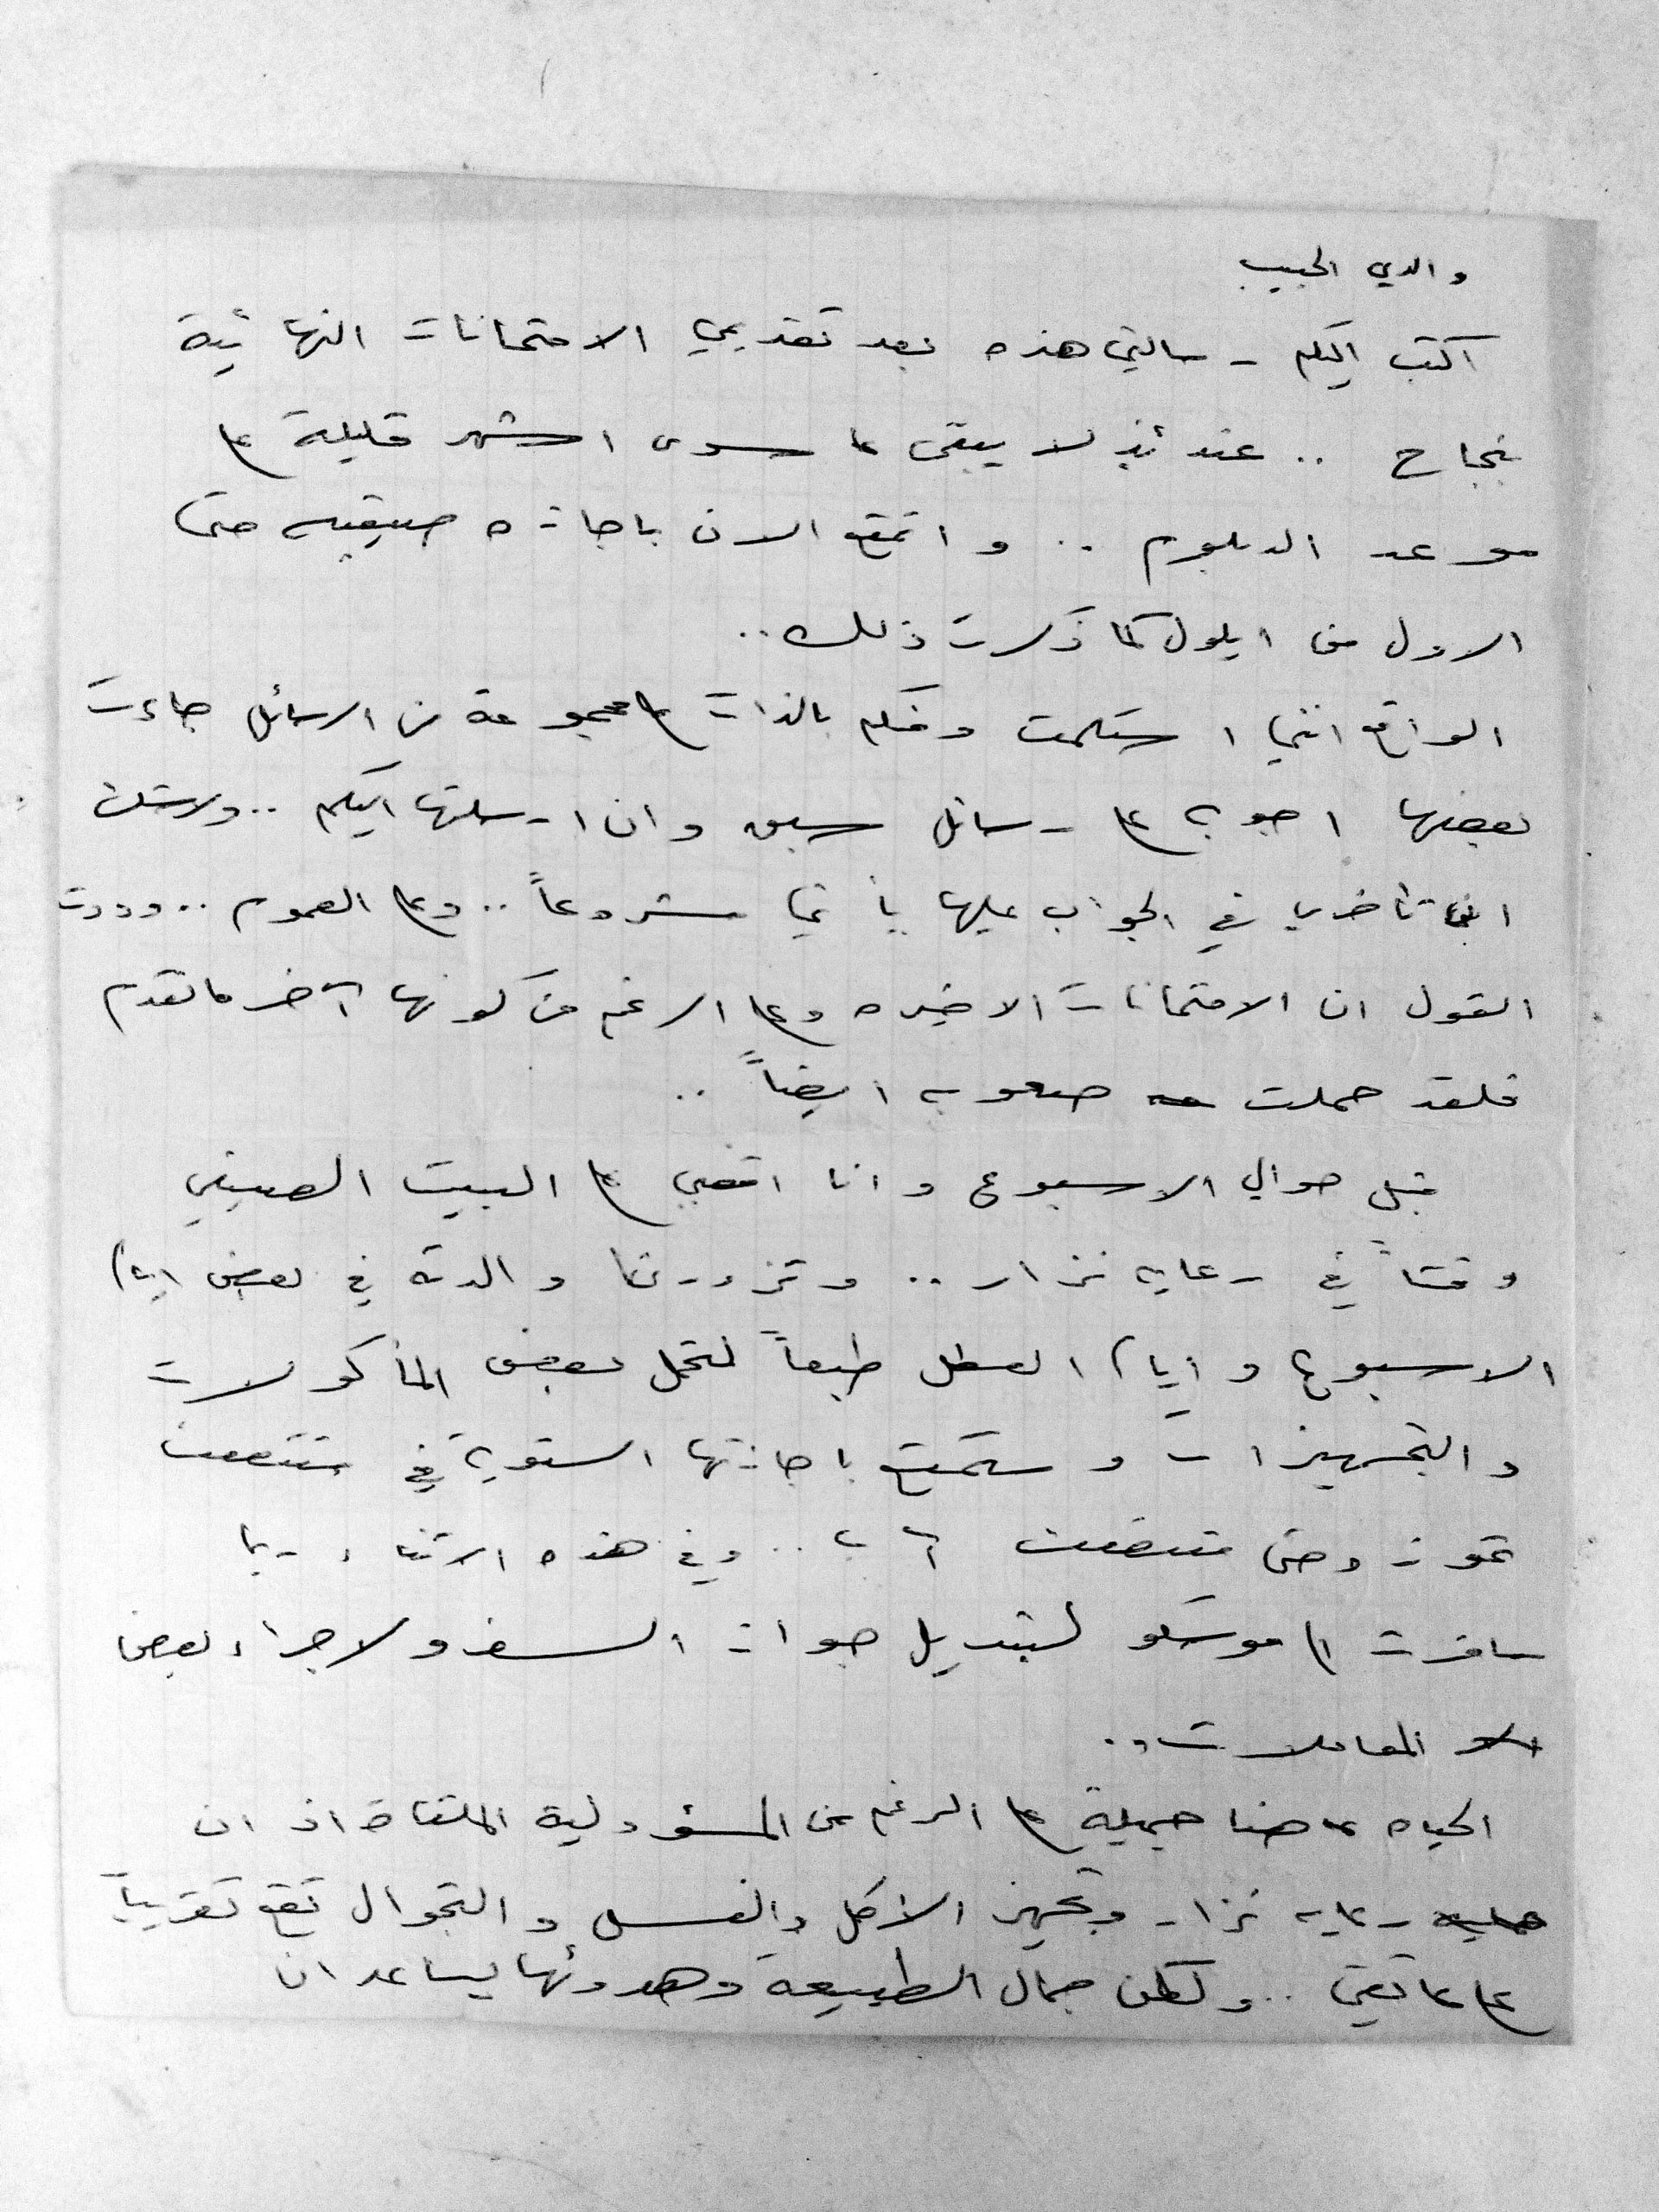 والدي الحبيب
اكتب اليكم رسالتي هذه بعد تقديمي الامتحانات النهائية
بنجاح .. عندئذ لا يبقى سوى اشهر قليلة على
موعد الدبلوم .. و اتمتع الان باجازه صيفيه حتى
الاول من ايلول كما ذكرت ذلك ..
الواقع انني استلمت ومنكم بالذات على مجموعة من الرسائل جاءت
بعضها اجوبه على رسائل سبق وان ارسلتها اليكم .. ولاشك
ان تأخري في الجواب عليها يأتي مشروعاً .. وعلى العموم .. وددت
القول ان الامتحانات الاخيره وعلى الرغم من كونها آخر ما تقدم
فلقد حملت صعوبه ايضاً ..
قبل حوالي الاسبوع و انا اقضي في البيت الصيفي
وقتاً في رعاية نزار .. و تزورنا والدته في بعض ايام
الاسبوع و أيام العطل طبعاً لتحمل بعض المأكولات
و التجهيزات و ستتمتع باجازتها السنوية في منتصف
تموز وحتى منتصف آب .. وفي هذه الاثناء ربما
سافرت الى موسكو لتبديل جواز السفر و لاجراء بعض
المعاملات ..
الحياه هنا جميلة على الرغم من المسؤولية الملقاة اذ ان
رعايه نزار وتجهيز الأكل والغسل و التجوال تقع تقريباً
على عاتقي .. ولكن جمال الطبيعة وهدوئها يساعدان